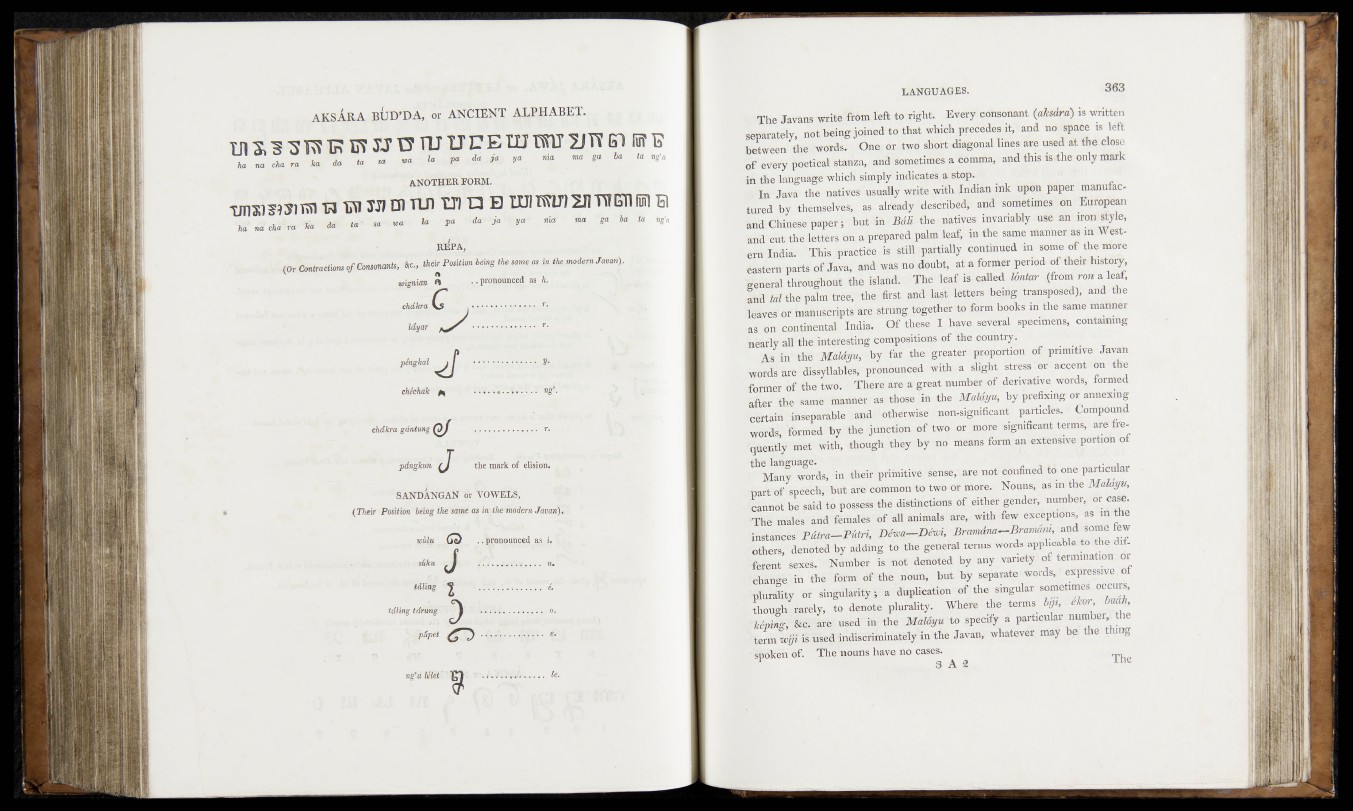 AKSÁRA BÚD'DA, or ANCIENT ALPHABET.
ha na cha ra ka da ta sa wa la pa da ja ya nia ma ga ba ta ng'a
ANOTHER FORM.
ha na cha ra ka da ta sa wa la pa da ja ya nia ma ga ba ta ng'a
RÉPA,
(Or Contractions of Consonants, &c., their Position being the same as in the modern Javan).
wignian .. pronounced as h.
chákra .............. r.
láyar .............. r.
péngkal .............. y.
chéchak .............. ng'.
chákra gántung .............. r.
pángkun the mark of elision.
SANDÁNGAN or VOWELS,
(Their Position being the same as in the modern Javan).
wúlu .. pronounced as i.
súku .............. u.
táling .............. é.
táling tárung .............. o.
pápet .............. e.
ng'a lélet .............. le.
LANGUAGES. 363
The Javans write from left to right. Every consonant (aksára) is written
separately, not being joined to that which precedes it, and no space is left
between the words. One or two short diagonal lines are used at the close
of every poetical stanza, and sometimes a comma, and this is the only mark
in the language which simply indicates a stop.
In Java the natives usually write with Indian ink upon paper manufac-
tured by themselves, as already described, and sometimes on European
and Chinese paper; but in Báli the natives invariably use an iron style,
and cut the letters on a prepared palm leaf, in the same manner as in West-
ern India. This practice is still partially continued in some of the more
eastern parts of Java, and was no doubt, at a former period of their history,
general throughout the island. The leaf is called lóntar (from ron a leaf,
and tal the palm tree, the first and last letters being transposed), and the
leaves or manuscripts are strung together to form books in the same manner
as on continental India. Of these I have several specimens, containing
nearly all the interesting compositions of the country.
As in the Maláyu, by far the greater proportion of primitive Javan
words are dissyllables, pronounced with a slight stress or accent on the
former of the two. There are a great number of derivative words, formed
after the same manner as those in the Maláyu, by prefixing or annexing
certain inseparable and otherwise non-significant particles. Compound
words, formed by the junction of two or more significant terms, are fre-
quently met with, though they by no means form an extensive portion of
the language.
Many words, in their primitive sense, are not confined to one particular
part of speech, but are common to two or more. Nouns, as in the Maláyu,
cannot be said to possess the distinctions of either gender, number, or case.
The males and females of all animals are, with few exceptions, as in the
instances Pútra—Pútri, Déwa—Déwi, Bramána—Bramáni, and some few
others, denoted by adding to the general terms words applicable to the dif-
ferent sexes. Number is not denoted by any variety of termination or
change in the form of the noun, but by separate words, expressive of
plurality or singularity; a duplication of the singular sometimes occurs,
though rarely, to denote plurality. Where the terms biji, ékor, buáh,
képing, &c. are used in the Maláyu to specify a particular number, the
term wiji is used indiscriminately in the Javan, whatever may be the thing
spoken of. The nouns have no cases.
3 A 2 The